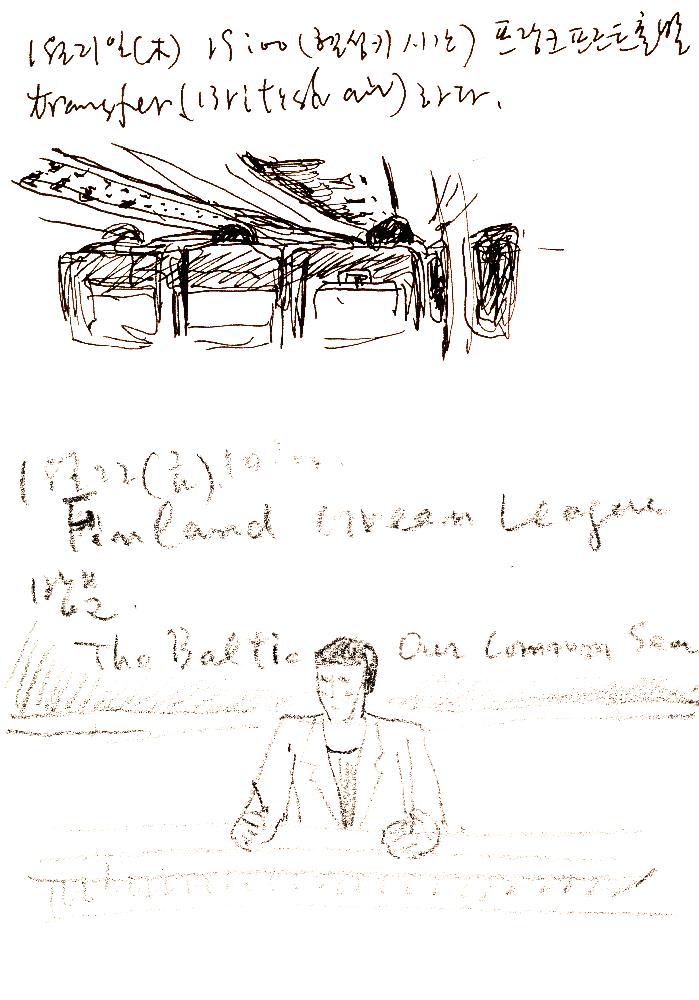 1월21일(木) 15:00(헬싱키시간) 프랑크프르트출발
transfer(British air)하다.
1월22(금). 10:00.
Finland Green League
방문.
The Baltic Our Common Sea